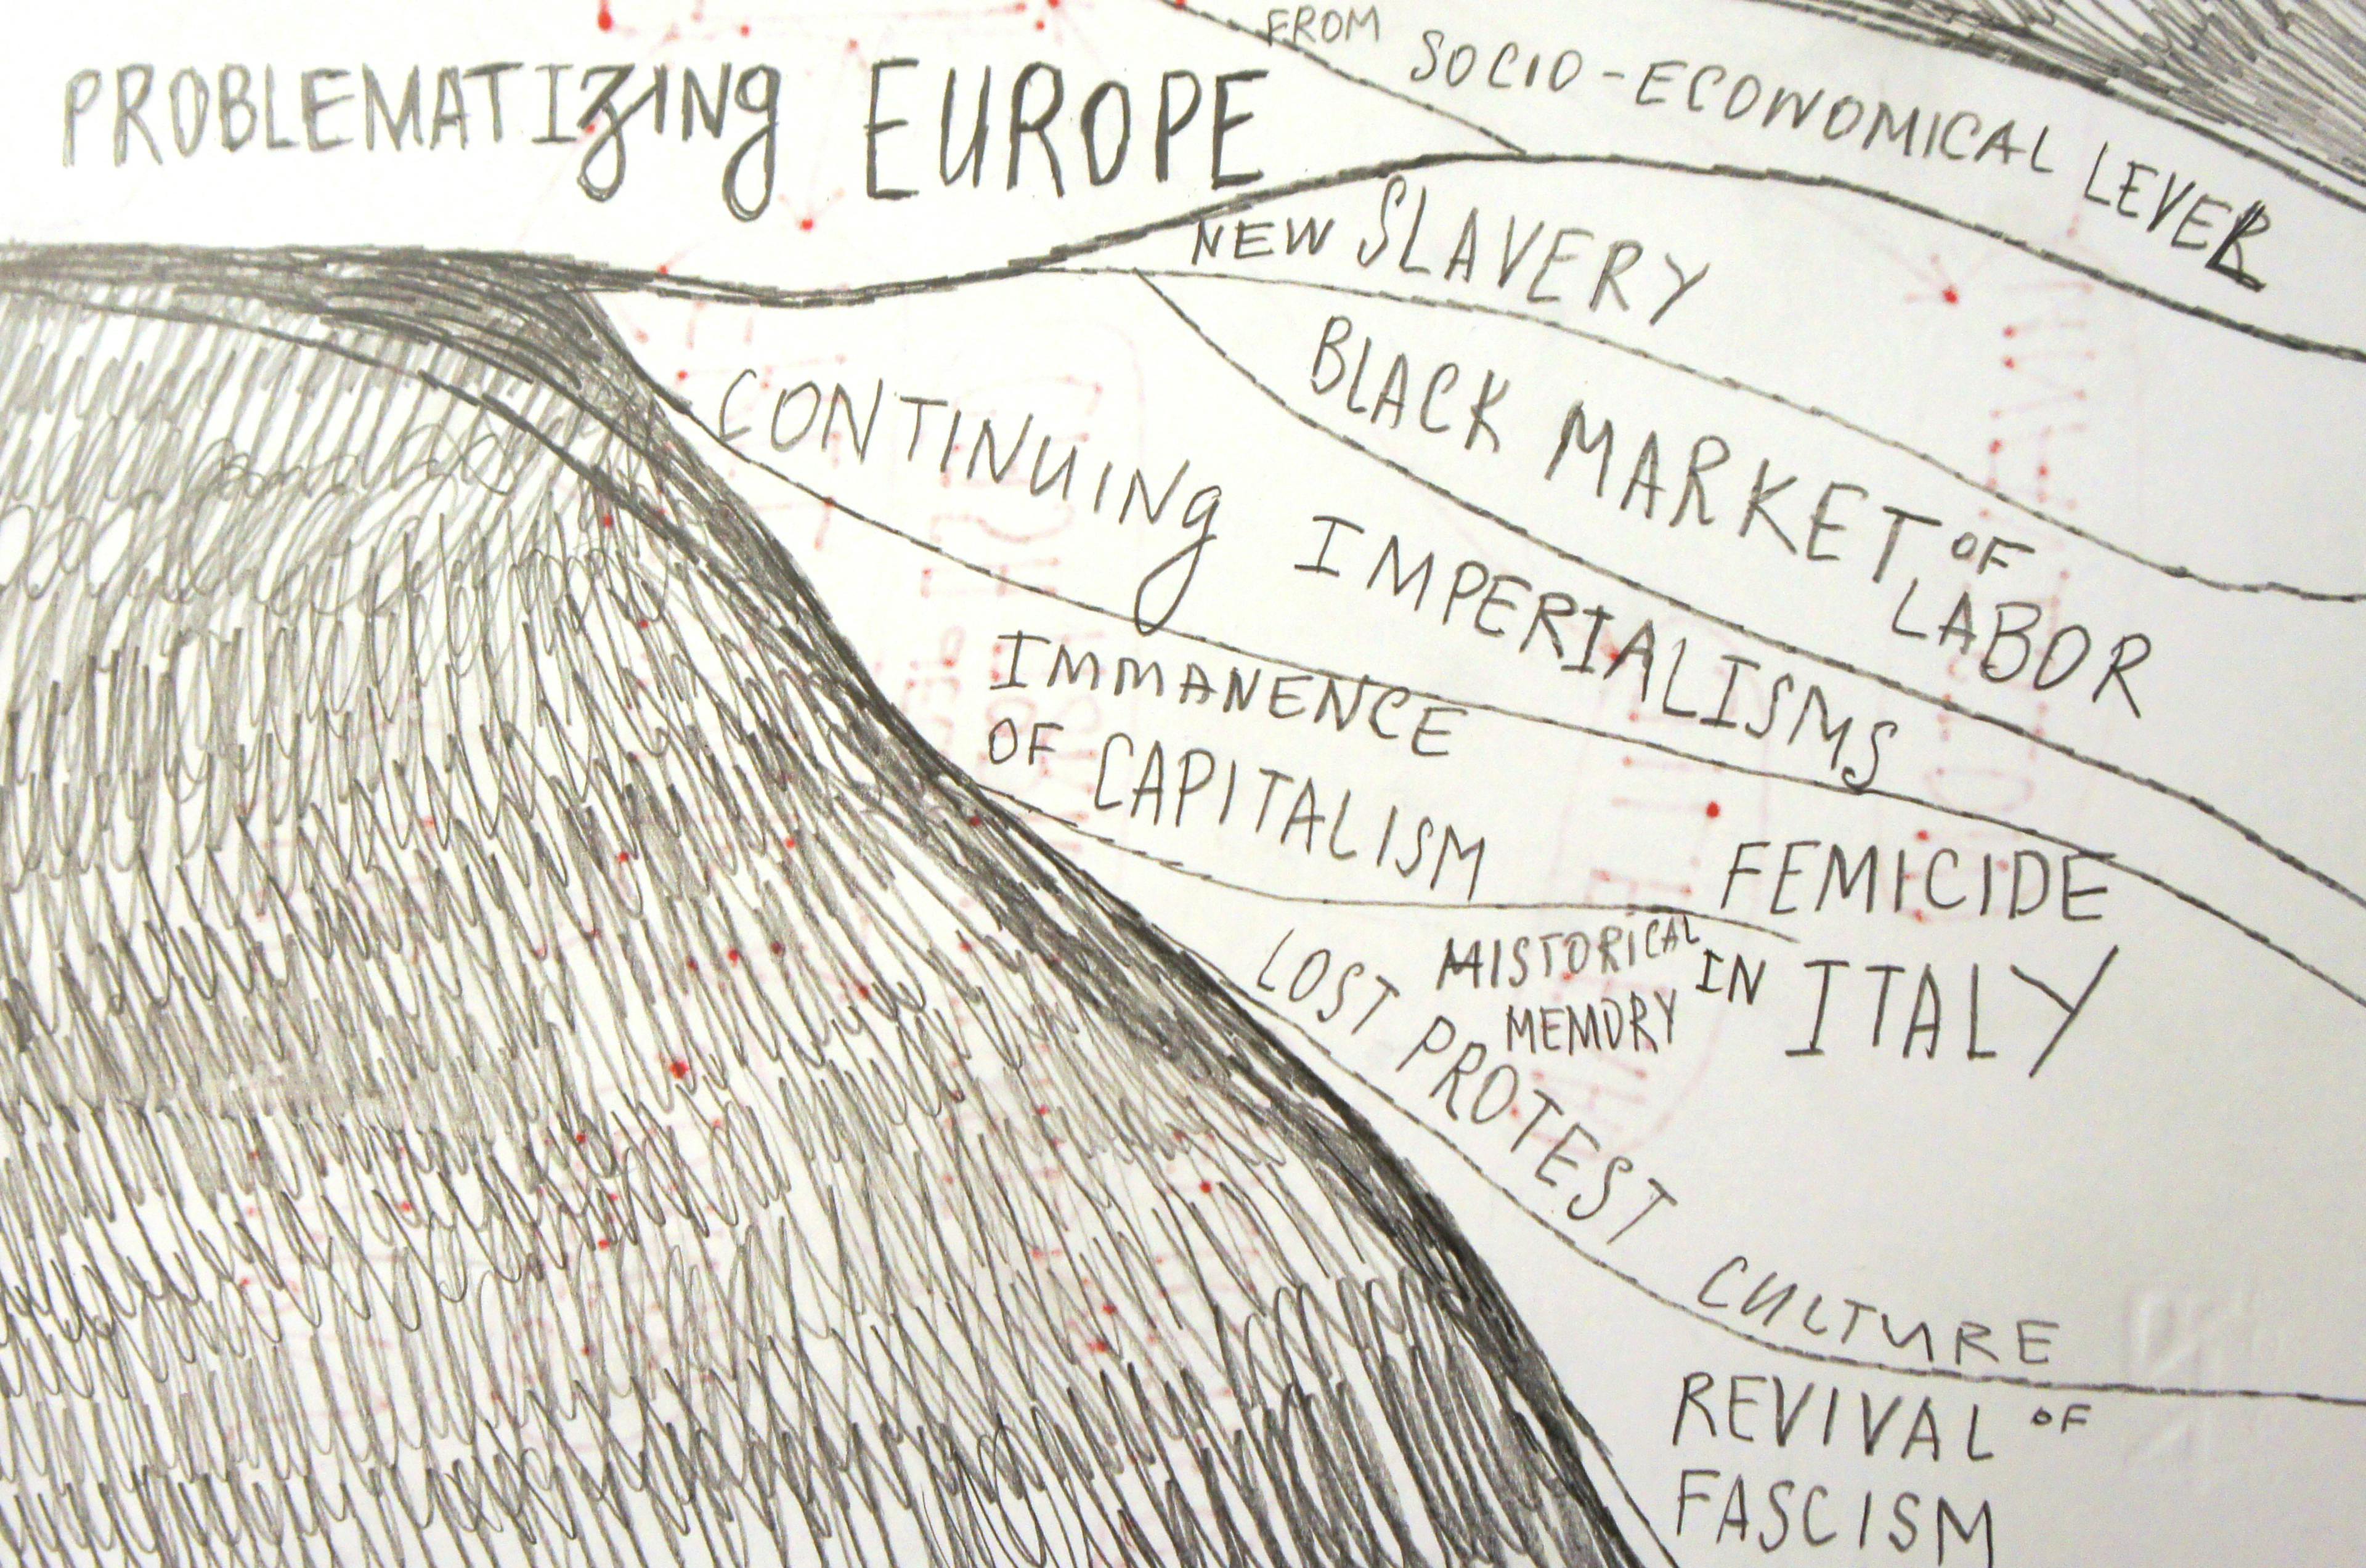 PROBLEMATIZING EUROPE
FROM SOCIO-ECONOMICAL LEVEL
NEW SLAVERY
BLACK MARKET OF
LABOR
CONTINUING IMPERIALISMS
IMMANENCE
OF CAPITALISM
FEMICIDE
IN ITALY
HISTORICAL
MEMORY
LOST PROTEST CULTURE
REVIVAL OF
FASCISM